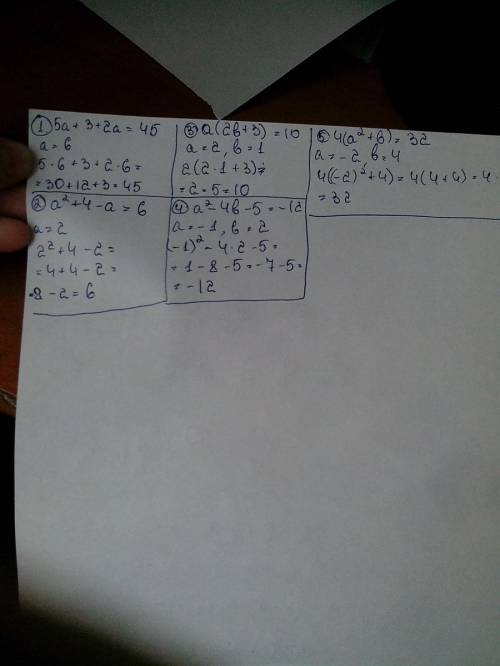 ① 5a+3+2a=45
a=6
5·6+3+2·6=
=30+12+3=45
② a²+4-a=6
a=2
2²+4-2=
=4+4-2=
8-2=6
③ a(2b+3)=10
a=2, b=1
2(2·1+3)=
=2·5=10
④ a²-4b-5=-12
a=-1, b=2
(-1)²-4·2-5=
=1-8-5=-7-5=
=-12
⑤ 4(a²+b)=32
a=-2, b=4
4((-2)²+4)=4(4+4)=4·
=32